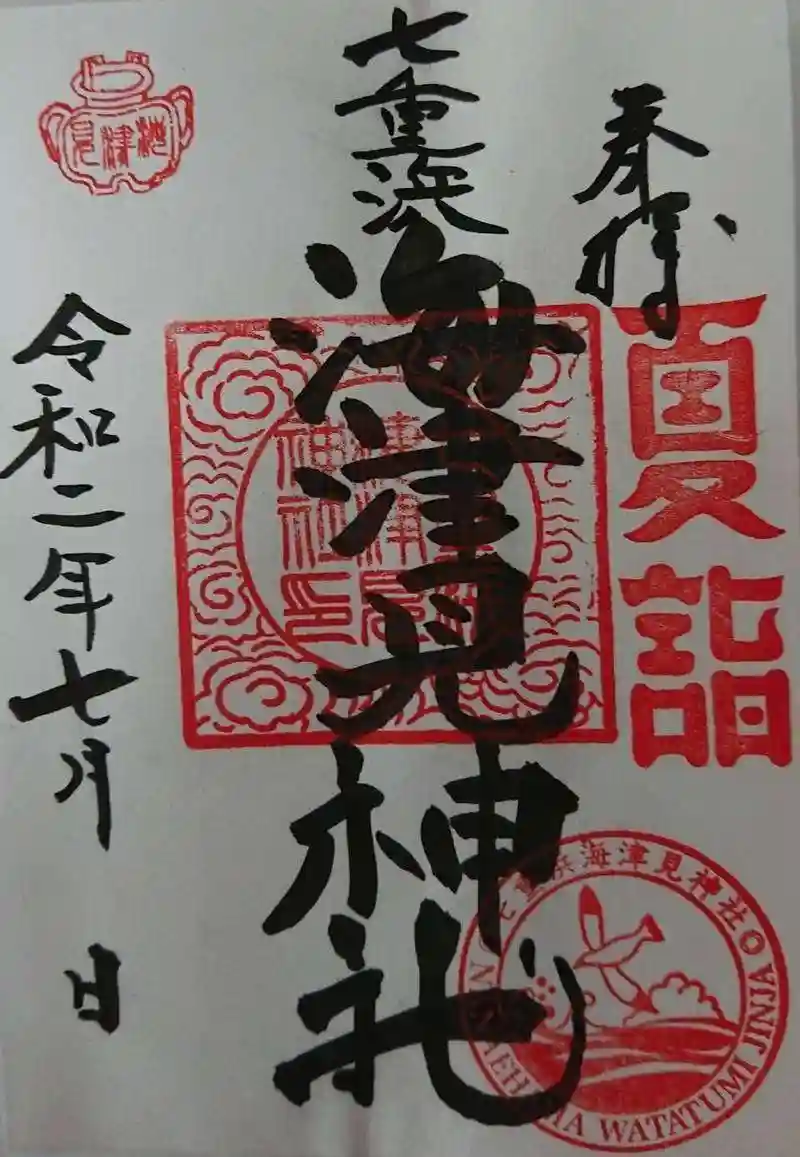 奉拝
夏詣
七重浜
海津見神社
七重浜海津見神社
NANAEHAMA WATATUMI JINJA
令和二年七月 日
海津見